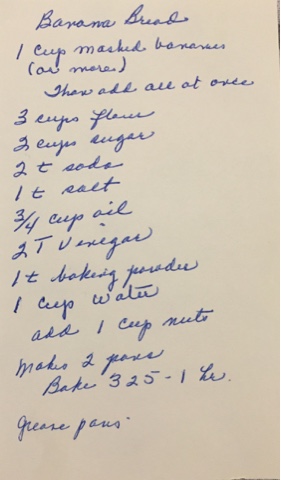 Banana Bread
1 cup mashed bananas
(or more)
Then add all at once
3 cups flour
2 cups sugar
2 t soda
1 t salt
3/4 cup oil
2 T Vinegar
1 t baking powder
1 cup water
add 1 cup nuts
Makes 2 pans
Bake 325 - 1 hr.
Grease pans.